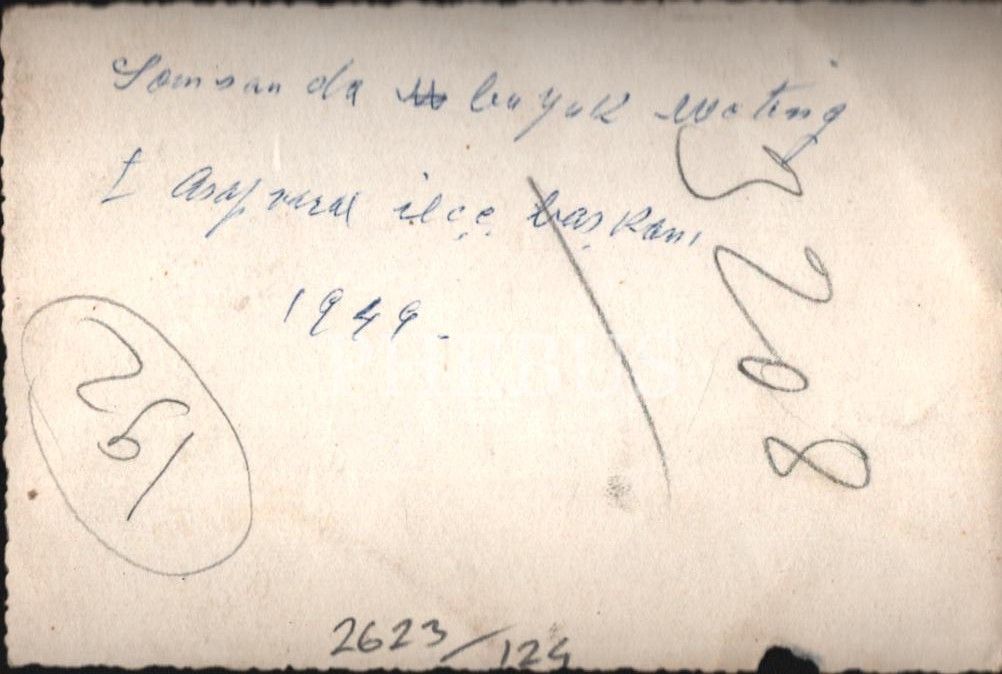 Samsunda büyük miting
I Asaf vural ilçe başkanı
1949.
192
5208
PHEBUS
2623/124